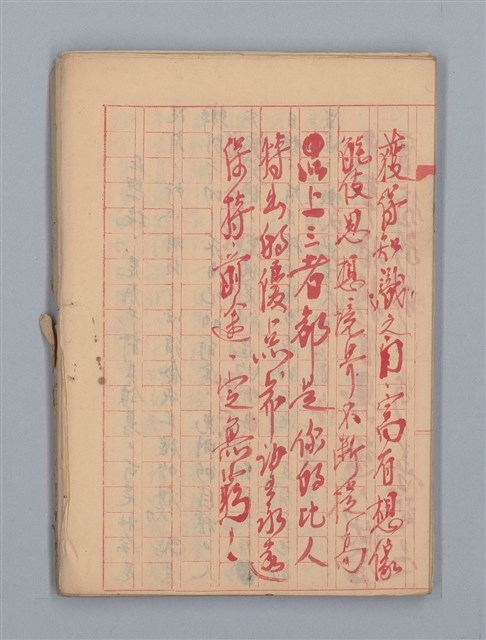 獲得知識之自、富有想像
能使思想境界不斷提高
以上三者都是你的比人
特出的優点、希望永遠
保持、前途、定無窮之